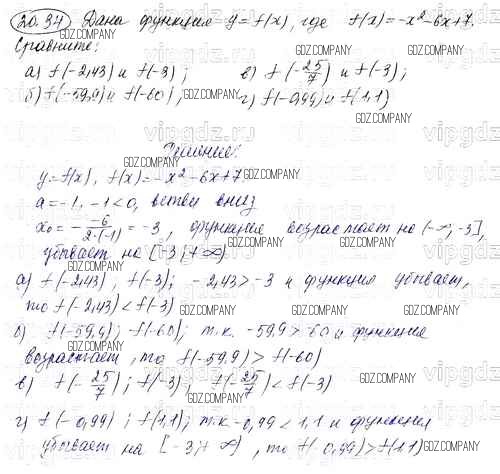 20.34 Дана функция y=f(x), где f(x)=-x²-6x+7.
Сравните:
а) f(-2,43) и f(-3); в) f(-25/7) и f(-3);
б) f(-59,9) и f(-60); г) f(-0,99) и f(1,1)
Решение:
y=f(x), f(x)=-x²-6x+7
a=-1, -1<0, ветви вниз
x₀=-(-6)/(2·(-1))=-3, функция возрастает на (-∞;-3],
убывает на [-3;+∞)
а) f(-2,43), f(-3); -2,43>-3 и функция убывает,
то f(-2,43)<f(-3)
б) f(-59,9); f(-60); т.к. -59,9>-60 и функция
возрастает, то f(-59,9)>f(-60)
в) f(-25/7); f(-3), f(-25/7)<f(-3)
г) f(-0,99); f(1,1); т.к. -0,99<1,1 и функция
убывает на [-3;+∞), то f(-0,99)>f(1,1)
GDZ.COMPANY
vipgdz.ru